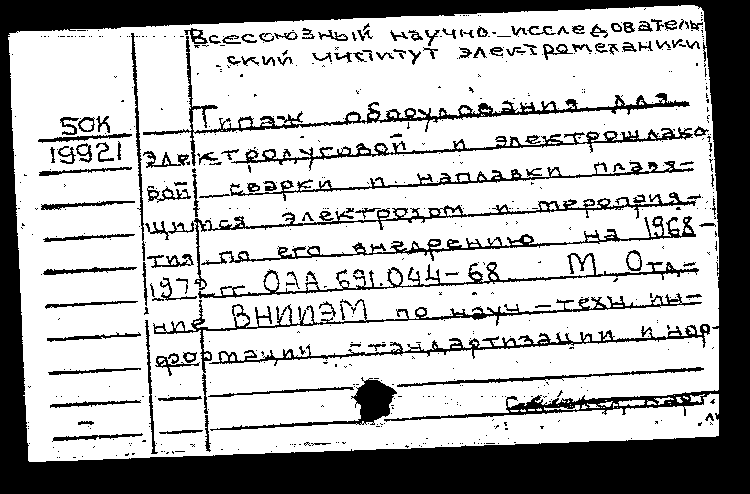 Всесоюзный научно-исследователь
ский институт электромеханики
Типаж оборудования для
50К
19921
электродуговой и электрошлако
вой сварки и наплавки плавя-
щимся электродом и мероприя-
тия по его внедрению на 1968-
1972 гг ОАА.691.044-68 М, Отд-
ние ВНИИЭМ по науч.-техн. ин-
формации, стандартизации и нор-